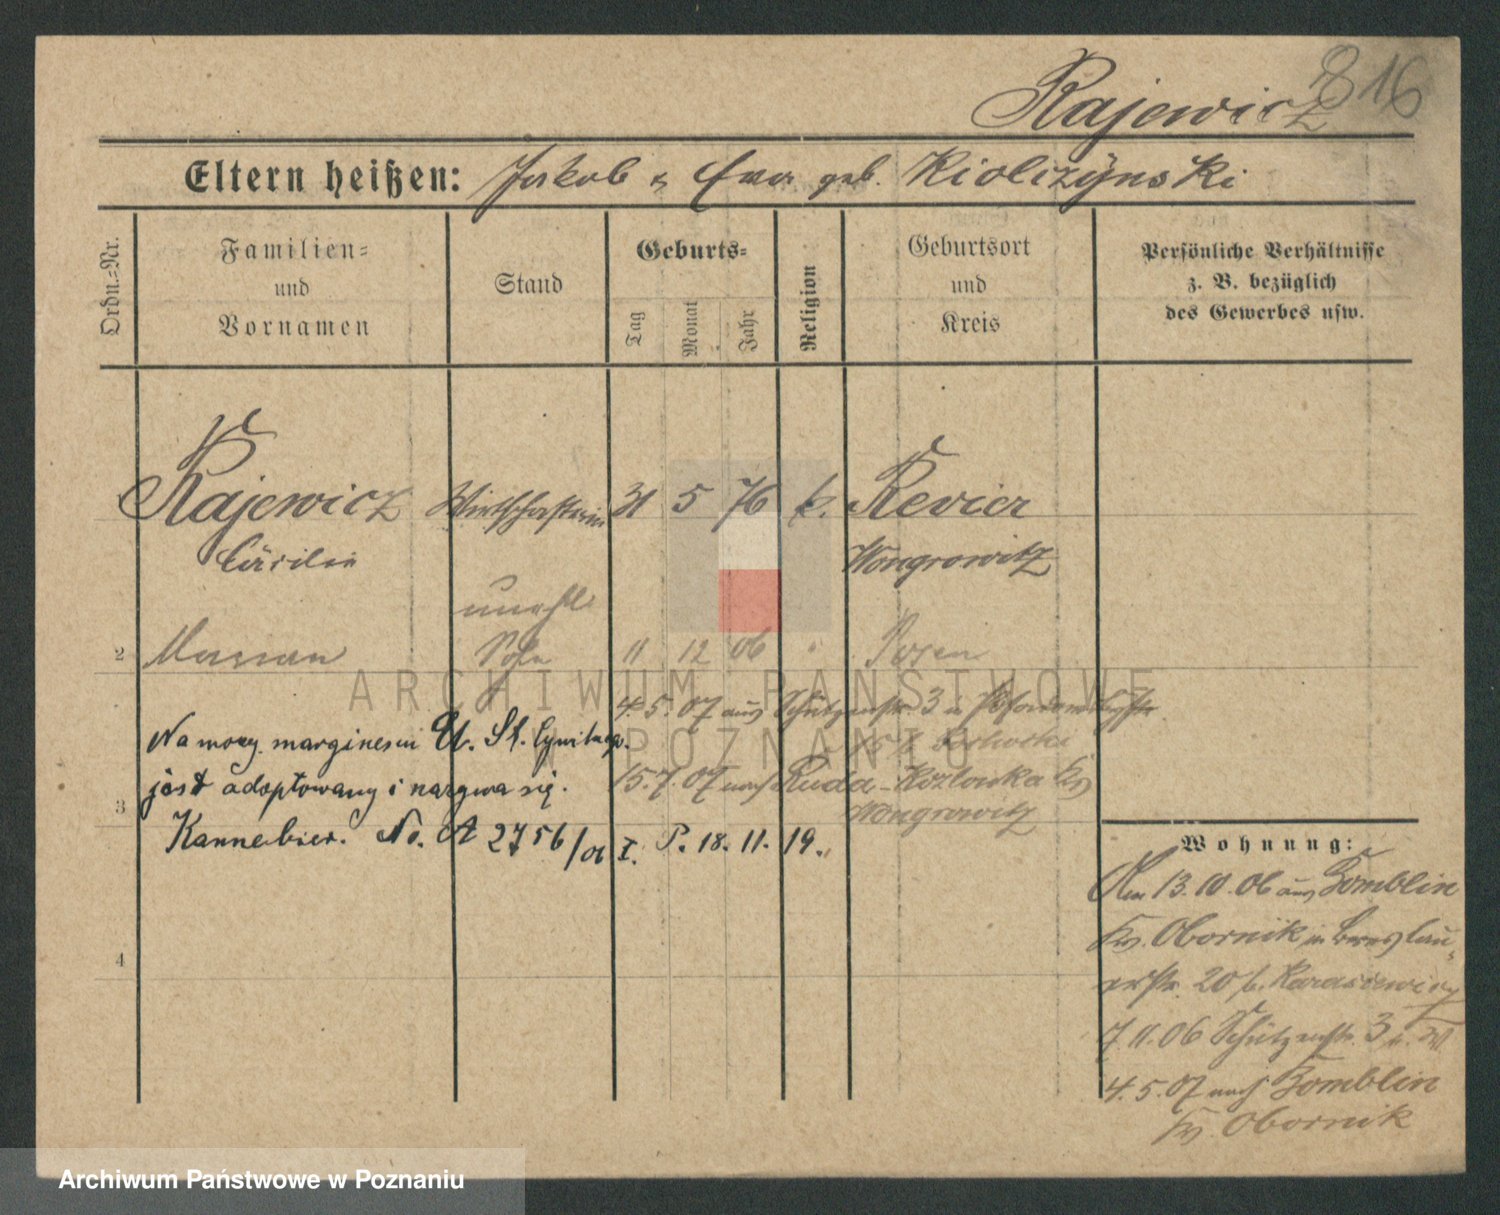 816
Rajewicz
Eltern heißen: Jakob & Eva geb. Kiolizÿnski
Ordn.=Nr.
Familien=
und
Vornamen
Stand
Geburts=
Tag
Monat
Jahr
Religion
Geburtsort
und
Kreis
Persönliche Verhältnisse
z. B. bezüglich
des Gewerbes usw.
Rajewicz Wirthschafterin 31 5 76 k. Revier
Cäcilie Wongrowitz
unehl
2 Marian Sohn 11 12 06 " Posen
4.5.07 aus Schützenstr. 3
Na mocy marginesu U. St. Cywilnego
15.7.07 nach Ruda-Kozlowka Krs
jest adoptowany i nazywa się.
Wongrowitz
3 Kannebier. No. A 2756/06 I. P. 18. 11. 19.
4
Wohnung:
Am 13.10.06 aus Bomblin
Krs. Obornik in Breslau-
erstr. 20 b. Karasiewicz
7.11.06 Schützenstr. 3
4.5.07 nach Bomblin
Krs Obornik
ARCHIWUM PAŃSTWOWE
W POZNANIU
Archiwum Państwowe w Poznaniu